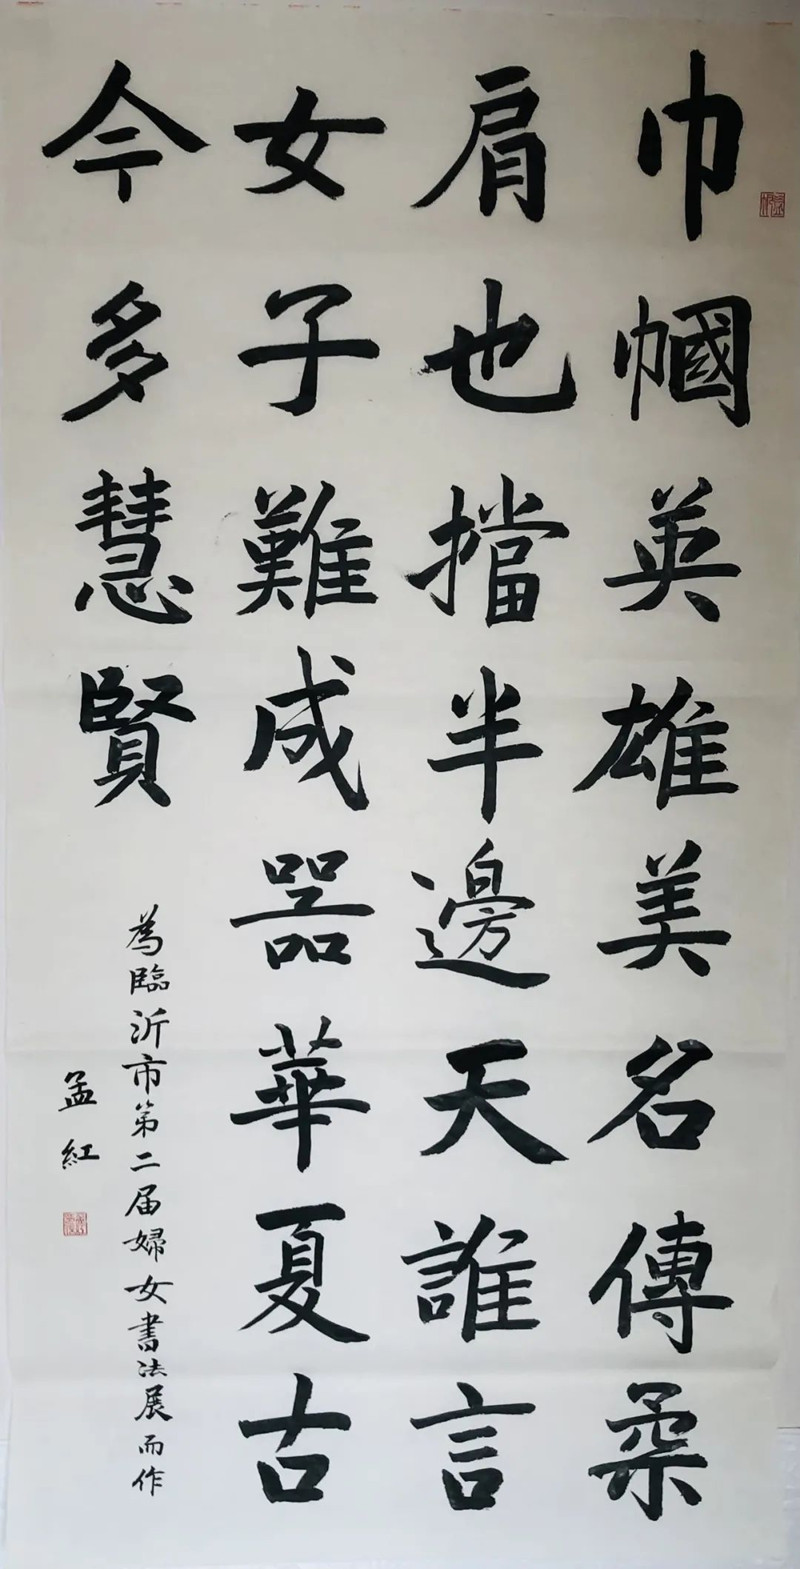 巾幗英雄美名傳柔
肩也擋半邊天誰言
女子難成器華夏古
今多慧賢
為臨沂市第二届婦女書法展而作
孟紅